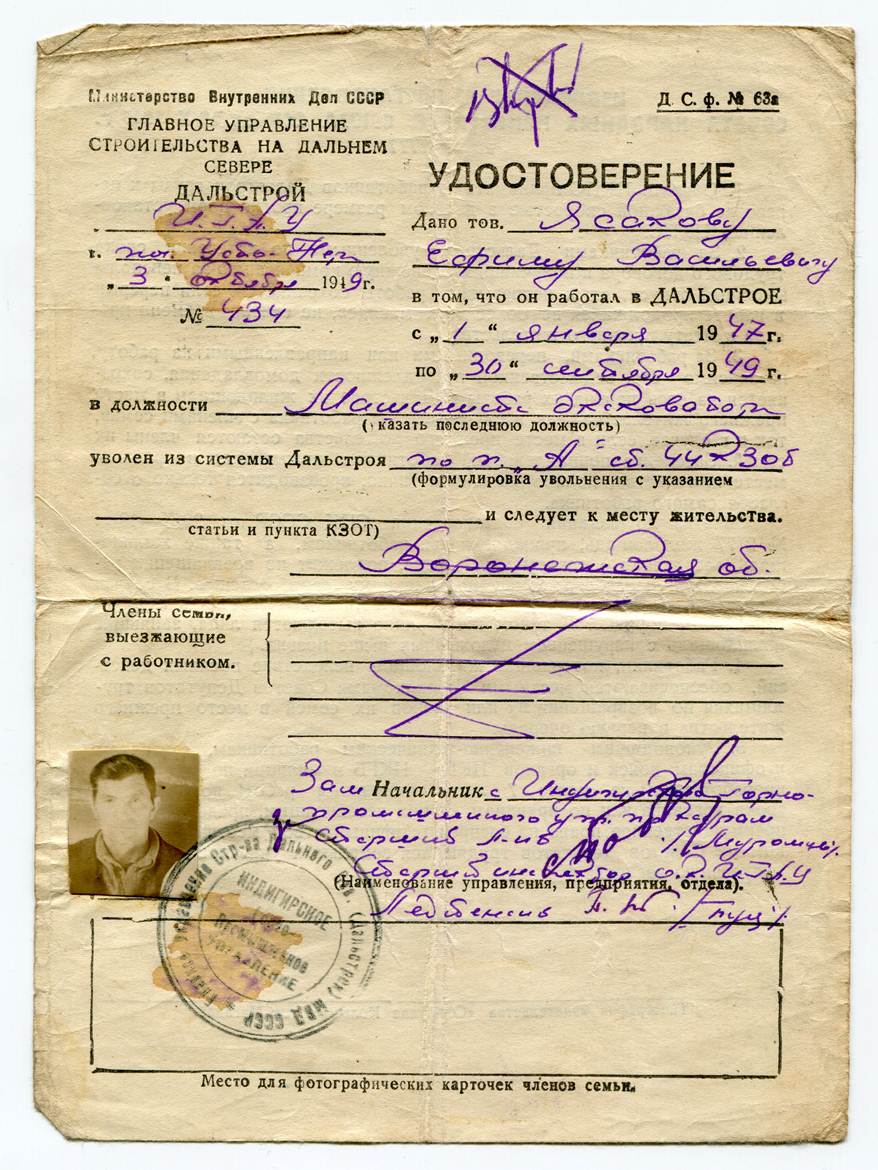 Министерство Внутренних Дел СССР
ГЛАВНОЕ УПРАВЛЕНИЕ
СТРОИТЕЛЬСТВА НА ДАЛЬНЕМ
СЕВЕРЕ
ДАЛЬСТРОЙ
И.Г.П.У
г. пос. Усть-Нера
„ 3 " октября 1949г.
№ 434
Д. С. ф. № 63а
УДОСТОВЕРЕНИЕ
Дано тов.
Ефиму Васильевичу
в том, что он работал в ДАЛЬСТРОЕ
с „ 1 " января 1947г.
по „ 30 " сентября 1949 г.
в должности Машиниста экскаватора
(указать последнюю должность)
уволен из системы Дальстроя по п. „А" ст. 44 КЗОТ
(формулировка увольнения с указанием
и следует к месту жительства.
статьи и пункта КЗОТ)
Воронежская об.
Члены семьи,
выезжающие
с работником.
Зам Начальник а Индигирского Горно-
промышленного упр. по кадрам
старший л-нт
Старший инспектор о.к. И.Г.П.У
(Наименование управления, предприятия, отдела).
ИНДИГИРСКОЕ
ГОРНО-
ПРОМЫШЛЕННОЕ
УПРАВЛЕНИЕ
(Дальстрой) МВД СССР
Место для фотографических карточек членов семьи.